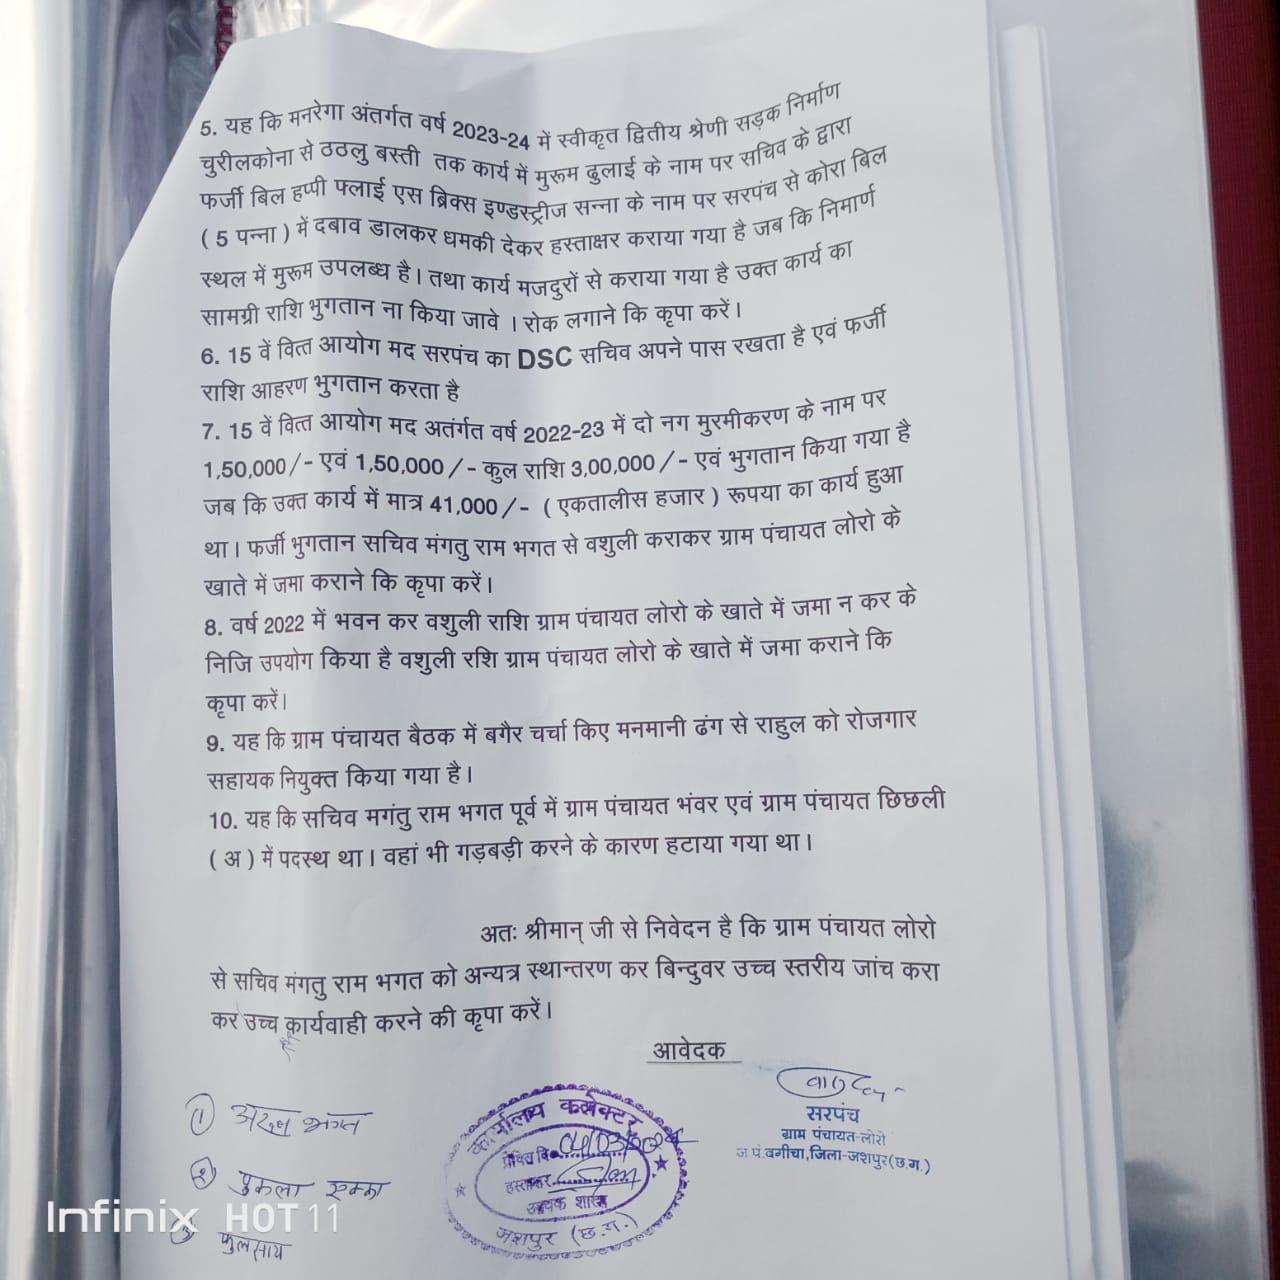 5. यह कि मनरेगा अंतर्गत वर्ष 2023-24 में स्वीकृत द्वितीय श्रेणी सड़क निर्माण
चुरीलकोना से ठठलु बस्ती तक कार्य में मुरूम ढुलाई के नाम पर सचिव के द्वारा
फर्जी बिल हप्पी फ्लाई एस ब्रिक्स इण्डस्ट्रीज सन्ना के नाम पर सरपंच से कोरा बिल
( 5 पन्ना ) में दबाव डालकर धमकी देकर हस्ताक्षर कराया गया है जब कि निमार्ण
स्थल में मुरूम उपलब्ध है। तथा कार्य मजदुरों से कराया गया है उक्त कार्य का
सामग्री राशि भुगतान ना किया जावे । रोक लगाने कि कृपा करें।
6. 15 वें वित्त आयोग मद सरपंच का DSC सचिव अपने पास रखता है एवं फर्जी
राशि आहरण भुगतान करता है
7. 15 वें वित्त आयोग मद अतंर्गत वर्ष 2022-23 में दो नग मुरमीकरण के नाम पर
1,50,000/- एवं 1,50,000/- कुल राशि 3,00,000/- एवं भुगतान किया गया है
जब कि उक्त कार्य में मात्र 41,000/- ( एकतालीस हजार ) रूपया का कार्य हुआ
था। फर्जी भुगतान सचिव मंगतु राम भगत से वशुली कराकर ग्राम पंचायत लोरो के
खाते में जमा कराने कि कृपा करें।
8. वर्ष 2022 में भवन कर वशुली राशि ग्राम पंचायत लोरो के खाते में जमा न कर के
निजि उपयोग किया है वशुली रशि ग्राम पंचायत लोरो के खाते में जमा कराने कि
कृपा करें।
9. यह कि ग्राम पंचायत बैठक में बगैर चर्चा किए मनमानी ढंग से राहुल को रोजगार
सहायक नियुक्त किया गया है।
10. यह कि सचिव मगंतु राम भगत पूर्व में ग्राम पंचायत भंवर एवं ग्राम पंचायत छिछली
( अ ) में पदस्थ था। वहां भी गड़बड़ी करने के कारण हटाया गया था।
अतः श्रीमान् जी से निवेदन है कि ग्राम पंचायत लोरो
से सचिव मंगतु राम भगत को अन्यत्र स्थान्तरण कर बिन्दुवर उच्च स्तरीय जांच करा
कर उच्च कार्यवाही करने की कृपा करें।
आवेदक
सरपंच
ग्राम पंचायत-लोरो
ज.पं.बगीचा,जिला-जशपुर(छ.ग.)
कार्यालय कलेक्टर
हस्ताक्षर
आवक शाखा
जशपुर (छ.ग.)
① भगत
② 
③ फुलसाय
Infinix HOT 11